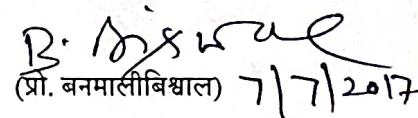 B. Biswal
(प्रो. बनमालीबिश्वाल) 7/7/2017